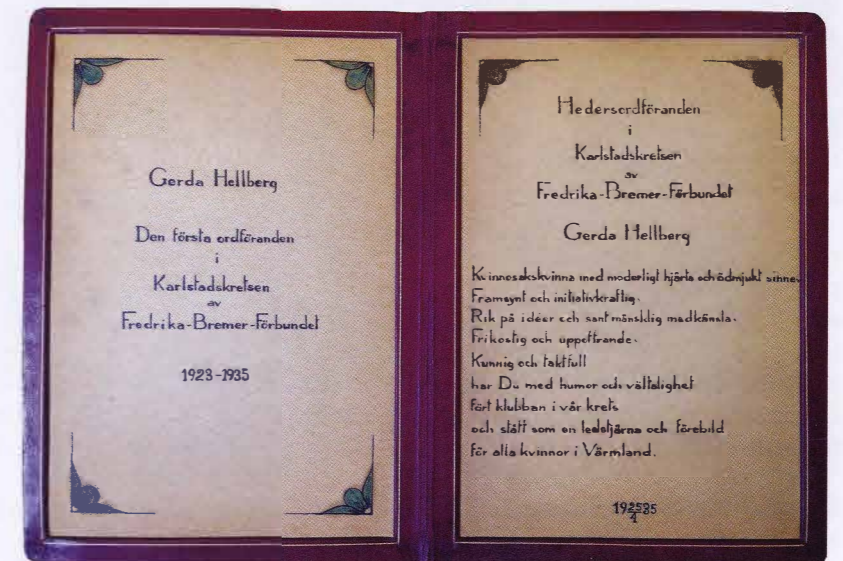 Gerda Hellberg
Den första ordföranden
i
Karlstadskretsen
av
Fredrika-Bremer-Förbundet
1923-1935
Hedersordföranden
i
Karlstadskretsen
av
Fredrika-Bremer-Förbundet
Gerda Hellberg
Kvinnosakskvinna med moderligt hjärta och ödmjukt sinne.
Framsynt och initiativkraftig.
Rik på idéer och sant mänsklig medkänsla.
Frikostig och uppoffrande.
Kunnig och taktfull
har Du med humor och vältalighet
fört klubban i vår krets
och stått som en ledstjärna och förebild
för alla kvinnor i Värmland.
19 25/4 35